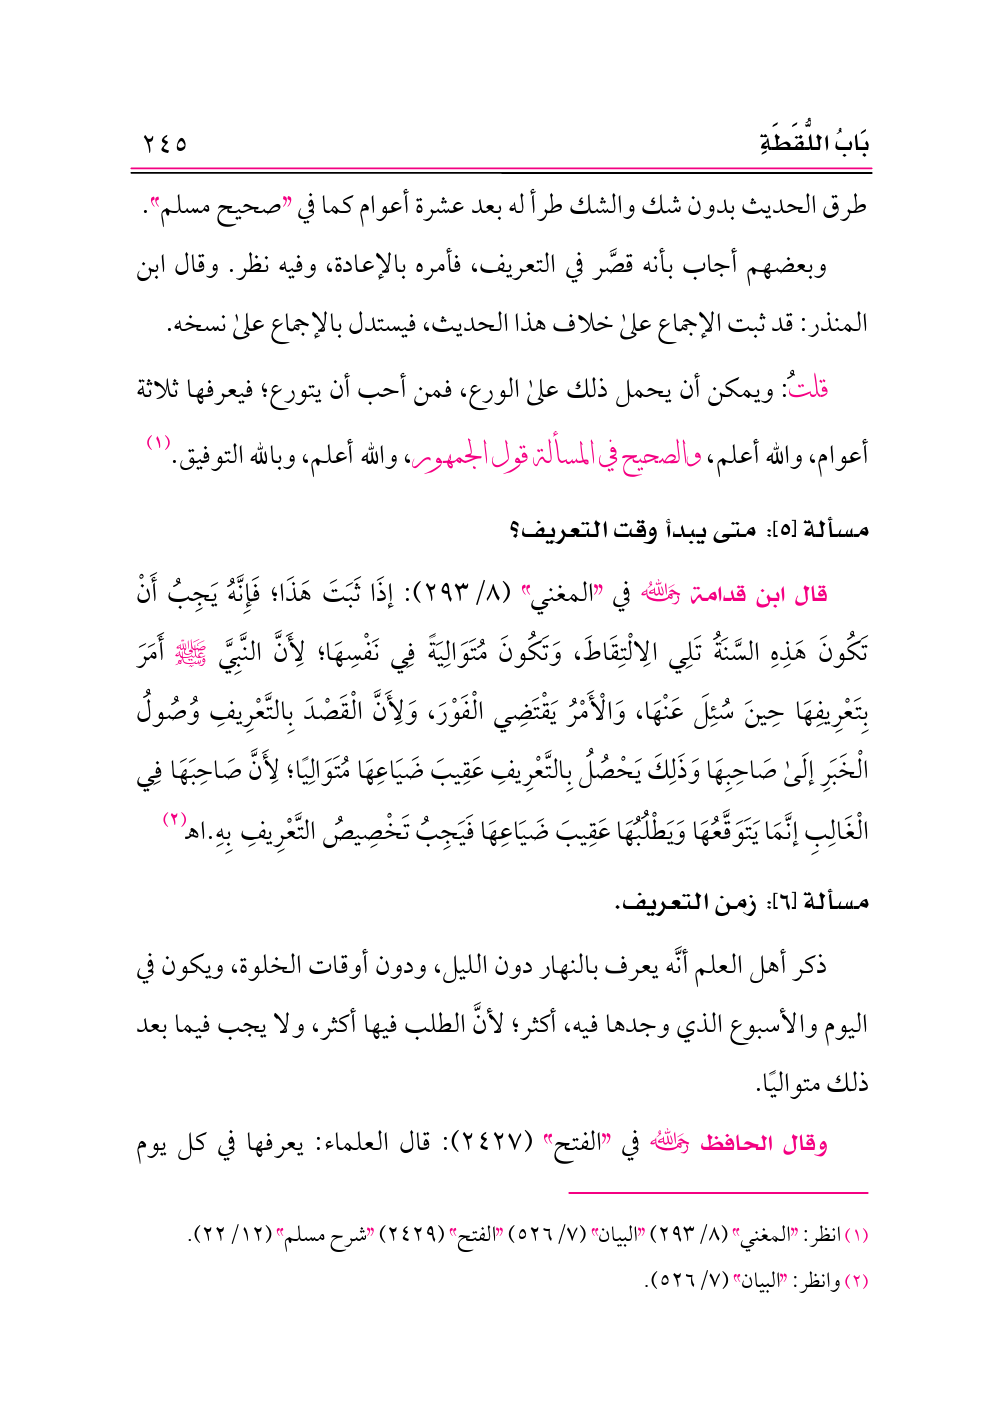 بَابُ اللُّقَطَةِ ٢٤٥
طرق الحديث بدون شك والشك طرأ له بعد عشرة أعوام كما في "صحيح مسلم".
وبعضهم أجاب بأنه قصَّر في التعريف، فأمره بالإعادة، وفيه نظر. وقال ابن
المنذر: قد ثبت الإجماع علىٰ خلاف هذا الحديث، فيستدل بالإجماع علىٰ نسخه.
قلتُ: ويمكن أن يحمل ذلك علىٰ الورع، فمن أحب أن يتورع؛ فيعرفها ثلاثة
أعوام، والله أعلم، والصحيح في المسألة قول الجمهور، والله أعلم، وبالله التوفيق.(١)
مسألة [٥]: متى يبدأ وقت التعريف؟
قال ابن قدامة رحمه الله في "المغني" (٨/ ٢٩٣): إذَا ثَبَتَ هَذَا؛ فَإِنَّهُ يَجِبُ أَنْ
تَكُونَ هَذِهِ السَّنَةُ تَلِي الِالْتِقَاطَ، وَتَكُونَ مُتَوَالِيَةً فِي نَفْسِهَا؛ لِأَنَّ النَّبِيَّ ﷺ أَمَرَ
بِتَعْرِيفِهَا حِينَ سُئِلَ عَنْهَا، وَالْأَمْرُ يَقْتَضِي الْفَوْرَ، وَلِأَنَّ الْقَصْدَ بِالتَّعْرِيفِ وُصُولُ
الْخَبَرِ إلَىٰ صَاحِبِهَا وَذَلِكَ يَحْصُلُ بِالتَّعْرِيفِ عَقِيبَ ضَيَاعِهَا مُتَوَالِيًا؛ لِأَنَّ صَاحِبَهَا فِي
الْغَالِبِ إنَّمَا يَتَوَقَّعُهَا وَيَطْلُبُهَا عَقِيبَ ضَيَاعِهَا فَيَجِبُ تَخْصِيصُ التَّعْرِيفِ بِهِ.اهـ(٢)
مسألة [٦]: زمن التعريف.
ذكر أهل العلم أنَّه يعرف بالنهار دون الليل، ودون أوقات الخلوة، ويكون في
اليوم والأسبوع الذي وجدها فيه، أكثر؛ لأنَّ الطلب فيها أكثر، ولا يجب فيما بعد
ذلك متواليًا.
وقال الحافظ رحمه الله في "الفتح" (٢٤٢٧): قال العلماء: يعرفها في كل يوم
(١) انظر: "المغني" (٨/ ٢٩٣) "البيان" (٧/ ٥٢٦) "الفتح" (٢٤٢٩) "شرح مسلم" (١٢/ ٢٢).
(٢) وانظر: "البيان" (٧/ ٥٢٦).